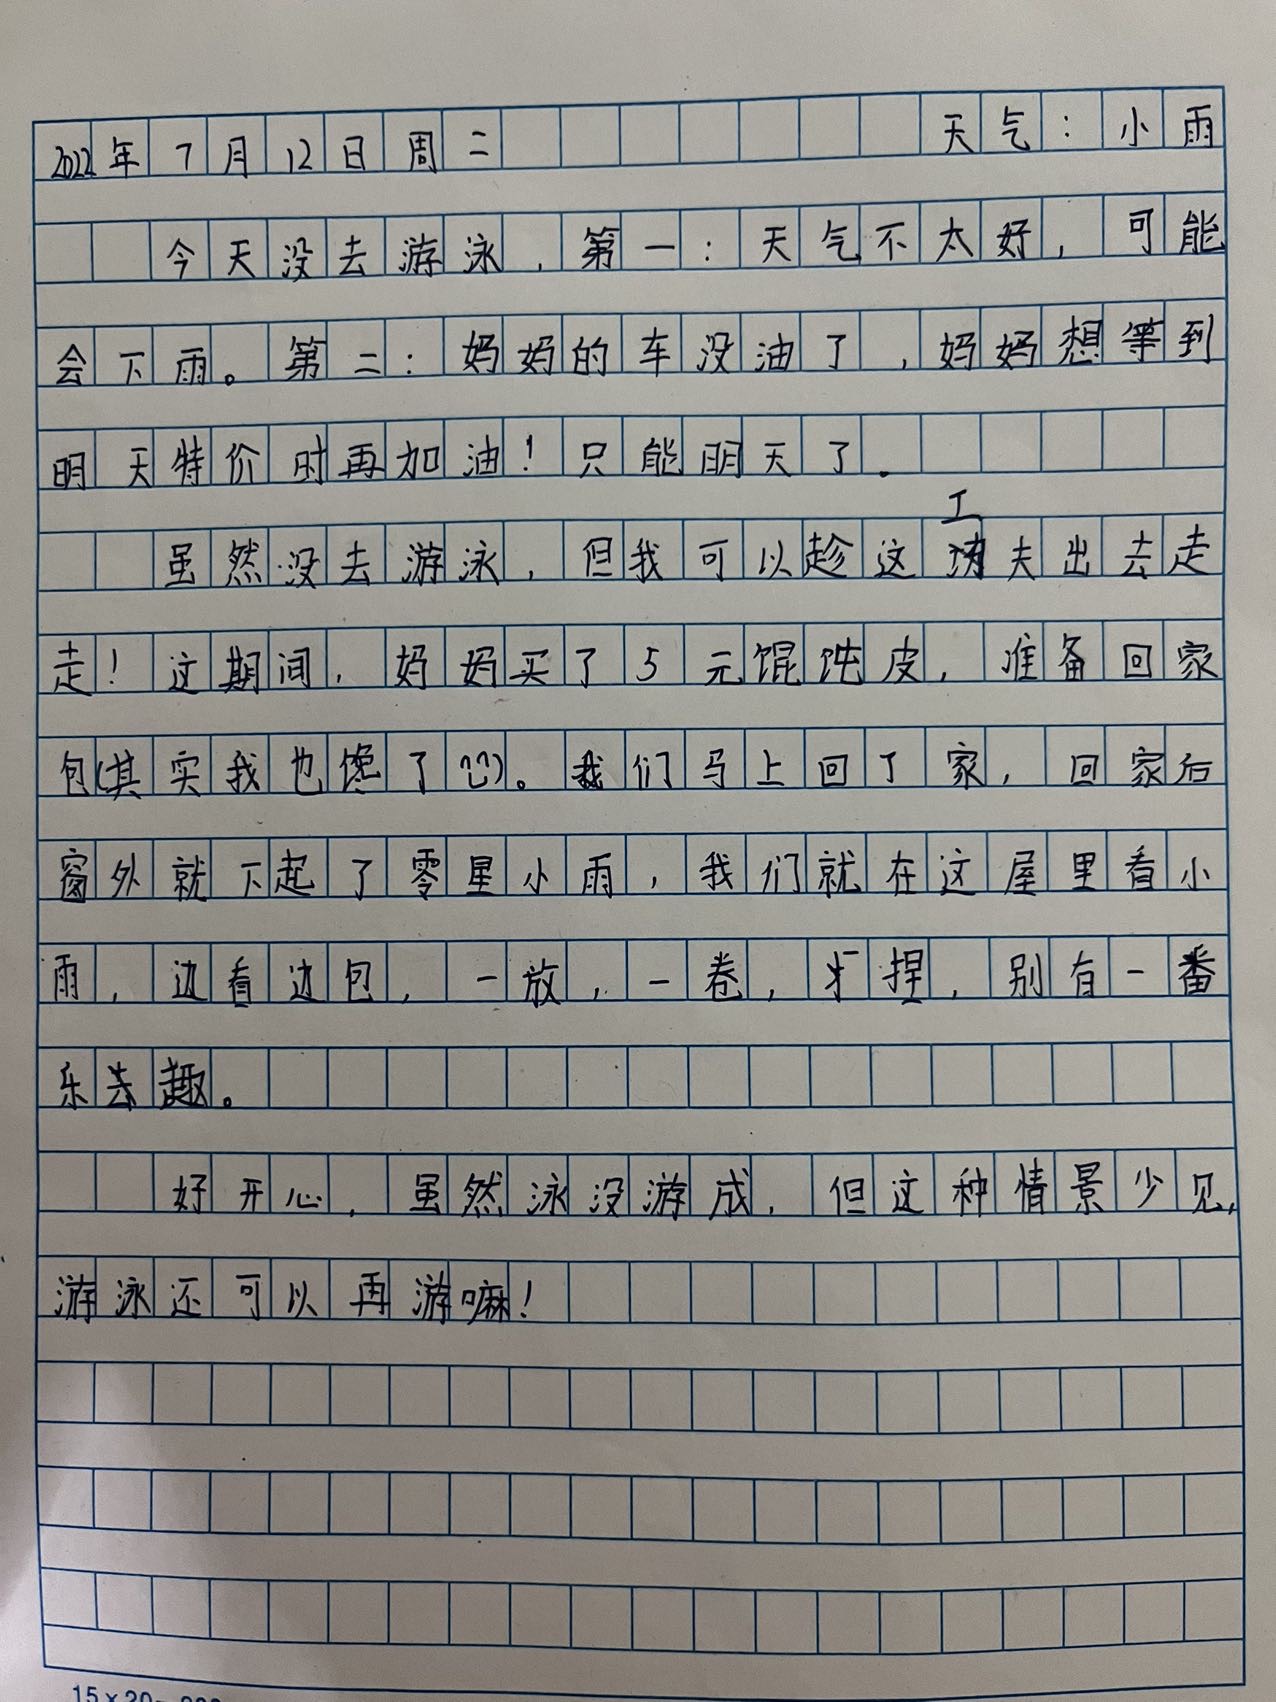 2022年7月12日周二 天气：小雨
今天没去游泳，第一：天气不太好，可能
会下雨。第二：妈妈的车没油了，妈妈想等到
明天特价时再加油！只能明天了。
工
虽然没去游泳，但我可以趁这夫出去走
走！这期间，妈妈买了5元馄饨皮，准备回家
包(其实我也馋了)。我们马上回了家，回家后
窗外就下起了零星小雨，我们就在这屋里看小
雨，边看边包，一放，一卷，捏，别有一番
乐去趣。
好开心，虽然泳没游成，但这种情景少见，
游泳还可以再游嘛！
15×20=